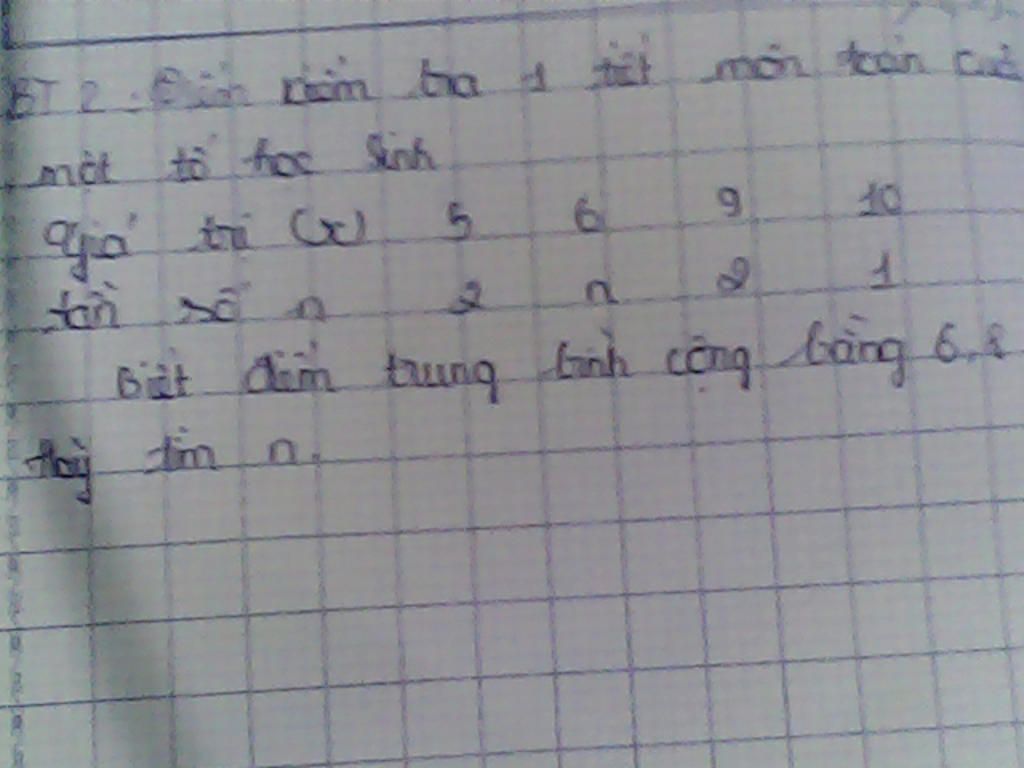 BT 2: Điểm kiểm tra 1 tiết môn toán của
một tổ học sinh
Giá trị (x) 5 6 9 10
tần số n 2 n 2 1
Biết điểm trung bình cộng bằng 6,8
Hãy tìm n.